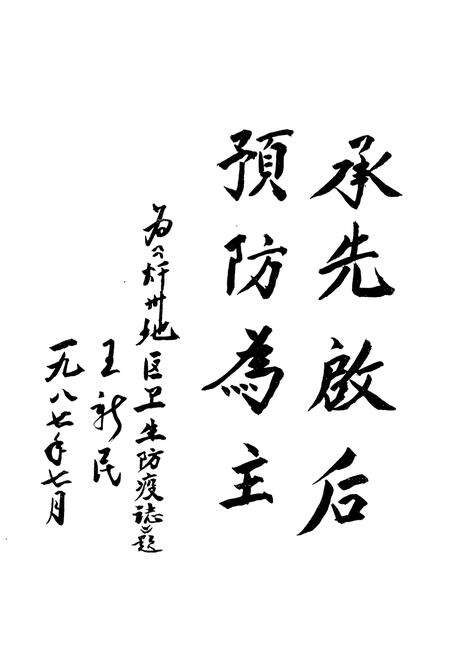 承先啟后
預防為主
为《州地区卫生防疫誌》题
王新民
一九八七年七月